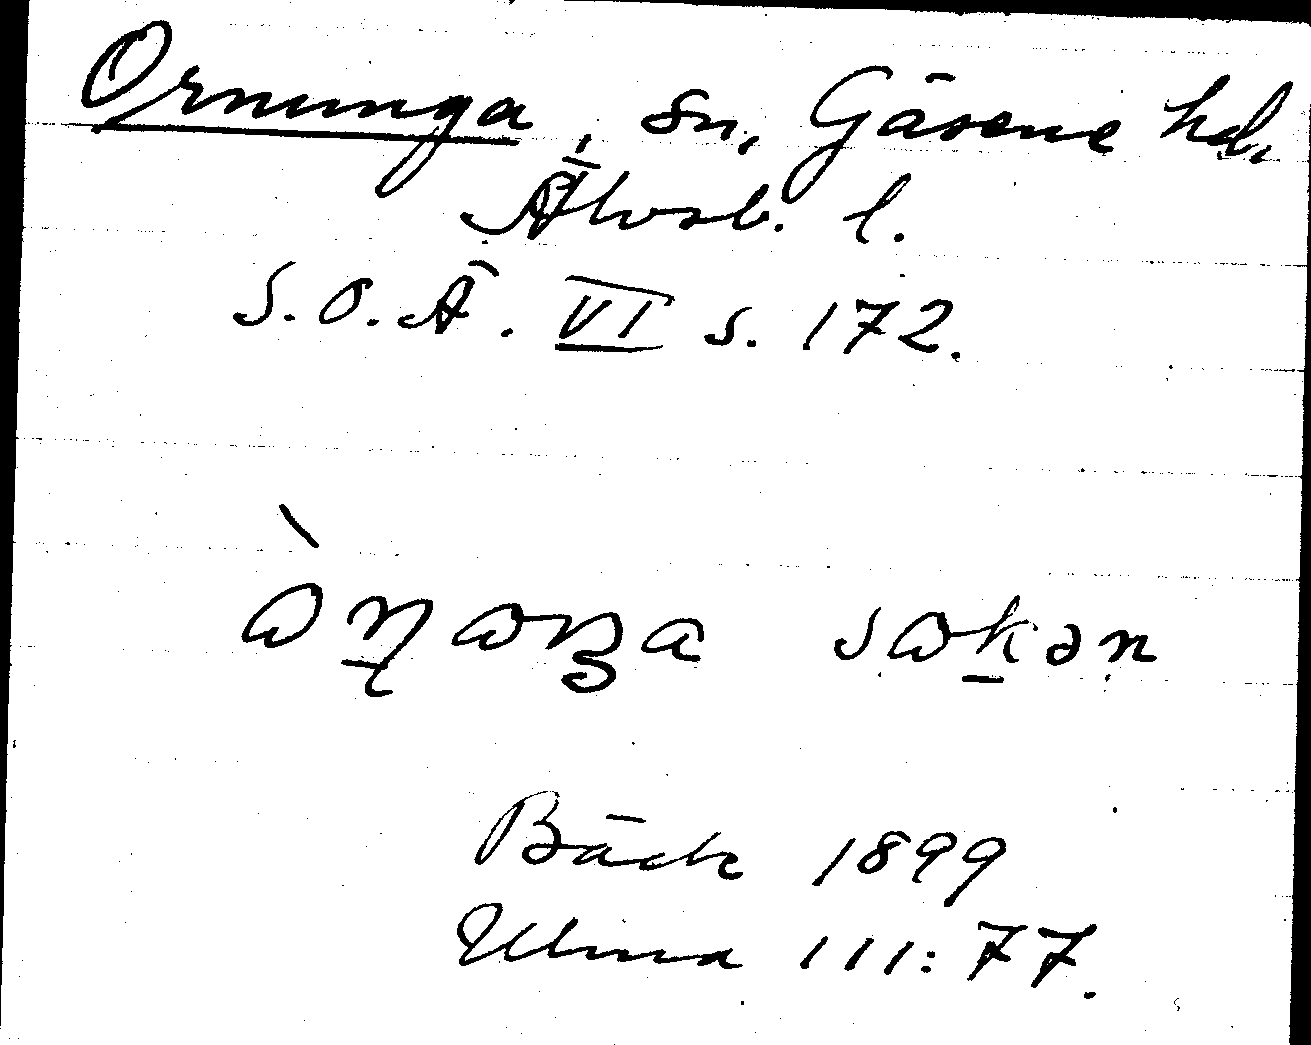 Ornunga, sn, Gäsene hd,
Älvsb. l.
S.O.Ä. VI s. 172.
Bäck 1899
Ulma 111:77.